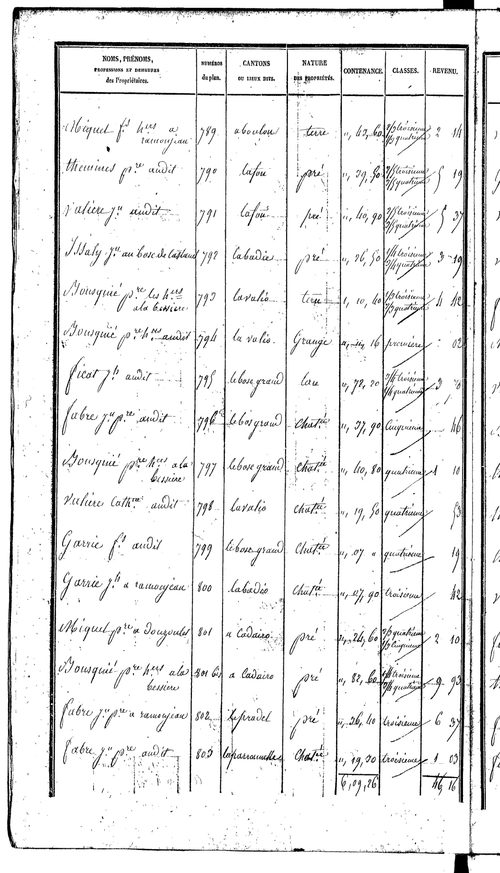 NOMS, PRÉNOMS, PROFESSIONS ET DEMEURES des Propriétaires. NUMÉROS du plan. CANTONS OU LIEUX DITS. NATURE DES PROPRIÉTÉS. CONTENANCE. CLASSES. REVENU.
Miquel fs hers a ramonjeau 789 aboulou terre ,, 43, 60 troisieme quatrieme 2 14
themines pre audit 790 lafou pré ,, 39, 50 troisieme quatrieme 5 19
valiere jn audit 791 lafou pré ,, 40, 90 troisieme quatrieme 5 37
Issaly jn au bosc de 792 labadie pré ,, 26, 50 troisieme quatrieme 3 19
Bousquié pre les hers a la bessiere 793 lavalio terre 1, 10, 40 troisieme quatrieme 4 42
Bousquié pre hers audit 794 la valio Grange ,, ,, 16 premiere 02
ficat jh audit 795 lebosc grand 72, 20 troisieme quatrieme 3
fabre jn pre audit 796 lebosc grand Chatée ,, 37, 90 Cinquieme 46
Bousquié pre hers a la bessiere 797 lebosc grand Chatée ,, 40, 80 quatrieme 1 10
valiere Cathne audit 798 lavalio chatée ,, 19, 50 quatrieme 53
Garrie fs audit 799 lebosc grand Chatée ,, 07 ,, quatrieme 19
Garrie jh a ramonjeau 800 labadio Chatée ,, 07, 90 troisieme 42
Miquel pre a Douzoules 801 a Cadairo pré ,, 24, 60 quatrieme Cinquieme 2 10
Bousquié pre hers a la bessiere 801 bis a Cadairo pré ,, 82, 60 troisieme quatrieme 9 93
fabre jn pre a ramonjeau 802 lepradet pré ,, 36, 40 troisieme 6 37
fabre jn pre audit 803 Chatée ,, 19, 30 troisieme 1 03
6, 09, 26 46 16